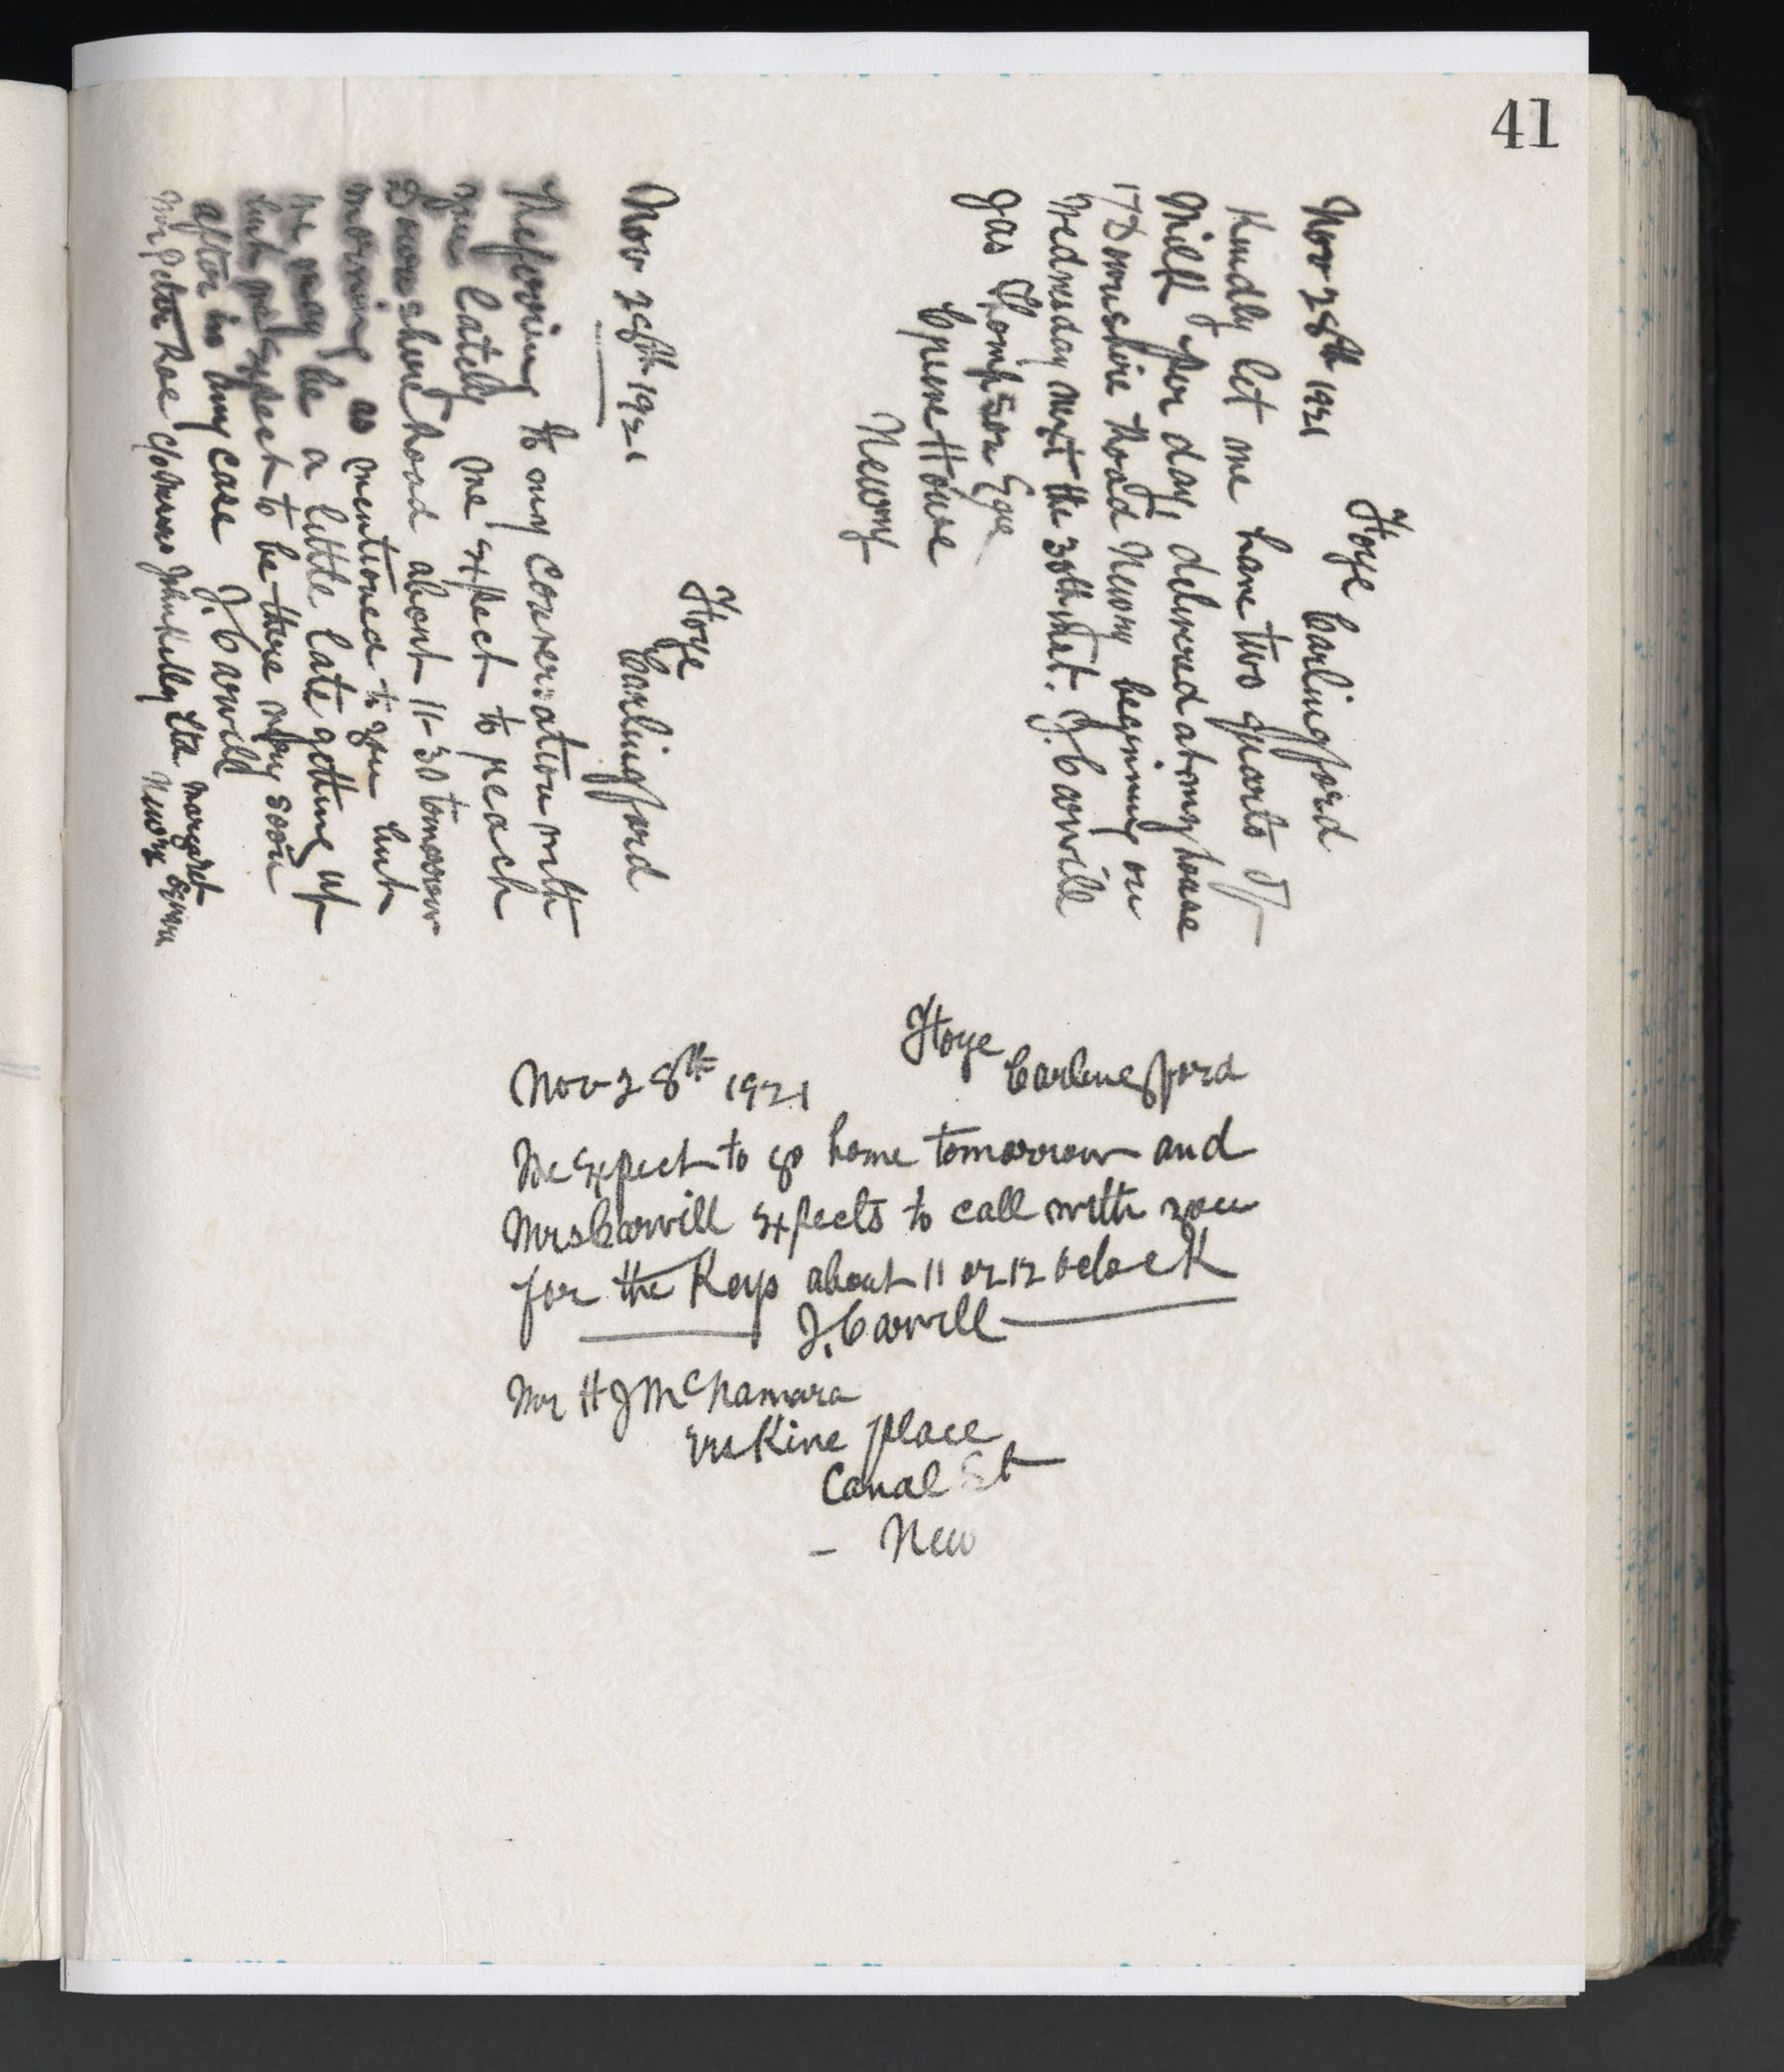 41
Hoye
Carlingford
Nov 28th 1921
Kindly let me have two quarts of
Milk per day, delivered at my house
17 Downshire Road Newry beginning on
Wednesday next the 30th inst. J. Carvill
Jas Thompson Eqre
Cpene House
Newry
Hoye
Carlingford
Nov 28th 1921
Referring to my conversation with
you lately we expect to reach
Downshire Road about 11-30 tomorrow
morning as mentioned to you but
we may be a little late getting up
but we expect to be there very soon
after in any case J. Carvill
Mr Peter Rae c/o Messrs John Kelly Ltd Margaret Square
Newry
Hoye
Carlingford
Nov 28th 1921
We expect to go home tomorrow and
Mrs Carvill expects to call with you
for the Keys about 11 or 12 oclock
J. Carvill
Mr H J McNamara
Erskine place
Canal St
- New